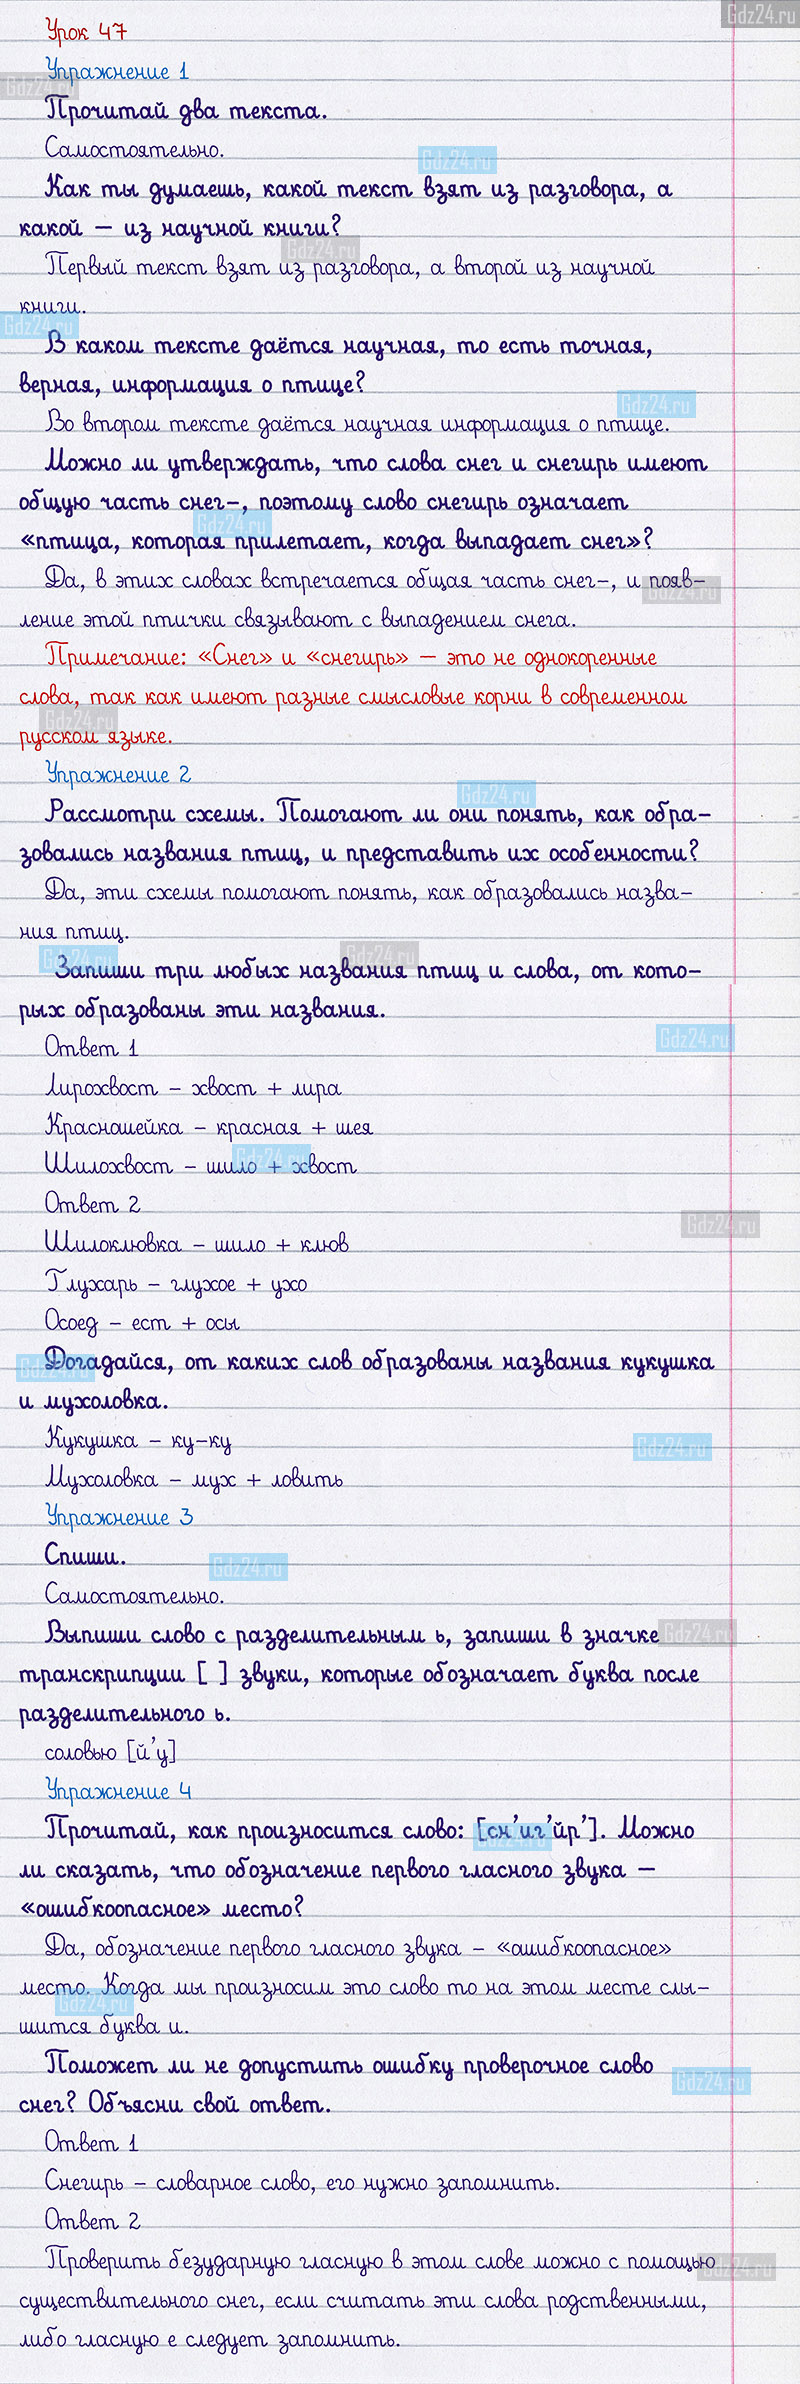 Gdz24.ru
Урок 47
Упражнение 1
Gdz24.ru
Прочитай два текста.
Самостоятельно.
Gdz24.ru
Как ты думаешь, какой текст взят из разговора, а
какой – из научной книги?
Gdz24.ru
Первый текст взят из разговора, а второй из научной
книги.
Gdz24.ru
В каком тексте даётся научная, то есть точная,
верная, информация о птице?
Gdz24.ru
Во втором тексте даётся научная информация о птице.
Можно ли утверждать, что слова снег и снегирь имеют
общую часть снег-, поэтому слово снегирь означает
Gdz24.ru
«птица, которая прилетает, когда выпадает снег»?
Да, в этих словах встречается общая часть снег-, и появ-
Gdz24.ru
ление этой птички связывают с выпадением снега.
Примечание: «Снег» и «снегирь» – это не однокоренные
слова, так как имеют разные смысловые корни в современном
Gdz24.ru
русском языке.
Упражнение 2
Gdz24.ru
Рассмотри схемы. Помогают ли они понять, как обра-
зовались названия птиц, и представить их особенности?
Да, эти схемы помогают понять, как образовались назва-
ния птиц.
Gdz24.ru
Gdz24.ru
Запиши три любых названия птиц и слова, от кото-
рых образованы эти названия.
Gdz24.ru
Ответ 1
Лирохвост – хвост + лира
Красношейка – красная + шея
Gdz24.ru
Шилохвост – шило + хвост
Ответ 2
Gdz24.ru
Шилоклювка – шило + клюв
Глухарь – глухое + ухо
Осоед – ест + осы
Gdz24.ru
Догадайся, от каких слов образованы названия кукушка
и мухоловка.
Кукушка – ку-ку
Gdz24.ru
Мухоловка – мух + ловить
Упражнение 3
Спиши.
Gdz24.ru
Самостоятельно.
Выпиши слово с разделительным ь, запиши в значке
Gdz24.ru
транскрипции [ ] звуки, которые обозначает буква после
разделительного ь.
соловью [й’у]
Упражнение 4
Прочитай, как произносится слово: [сн’иг’йр’]. Можно
Gdz24.ru
ли сказать, что обозначение первого гласного звука –
«ошибкоопасное» место?
Да, обозначение первого гласного звука – «ошибкоопасное»
место. Когда мы произносим это слово то на этом месте слы-
Gdz24.ru
шится буква и.
Поможет ли не допустить ошибку проверочное слово
Gdz24.ru
снег? Объясни свой ответ.
Ответ 1
Снегирь – словарное слово, его нужно запомнить.
Ответ 2
Проверить безударную гласную в этом слове можно с помощью
Gdz24.ru
существительного снег, если считать эти слова родственными,
либо гласную е следует запомнить.